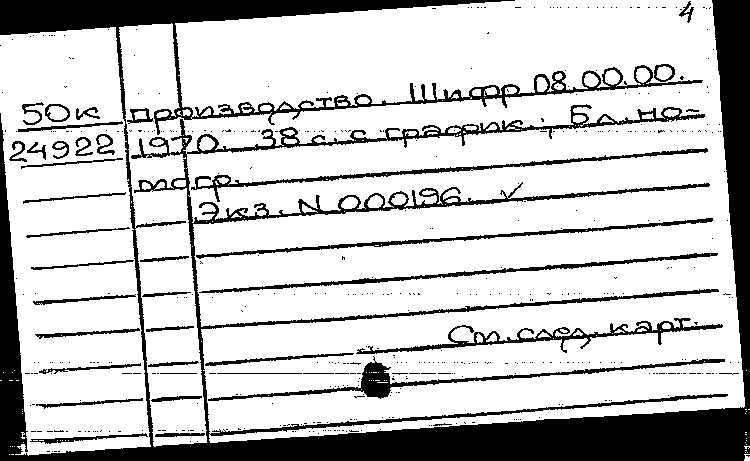 4
50к производство. Шифр 08.00.00.
24922 1970. 38 с. с график.; Бл. но-
тогр.
Экз. N 000196. ✓
См. след. карт.